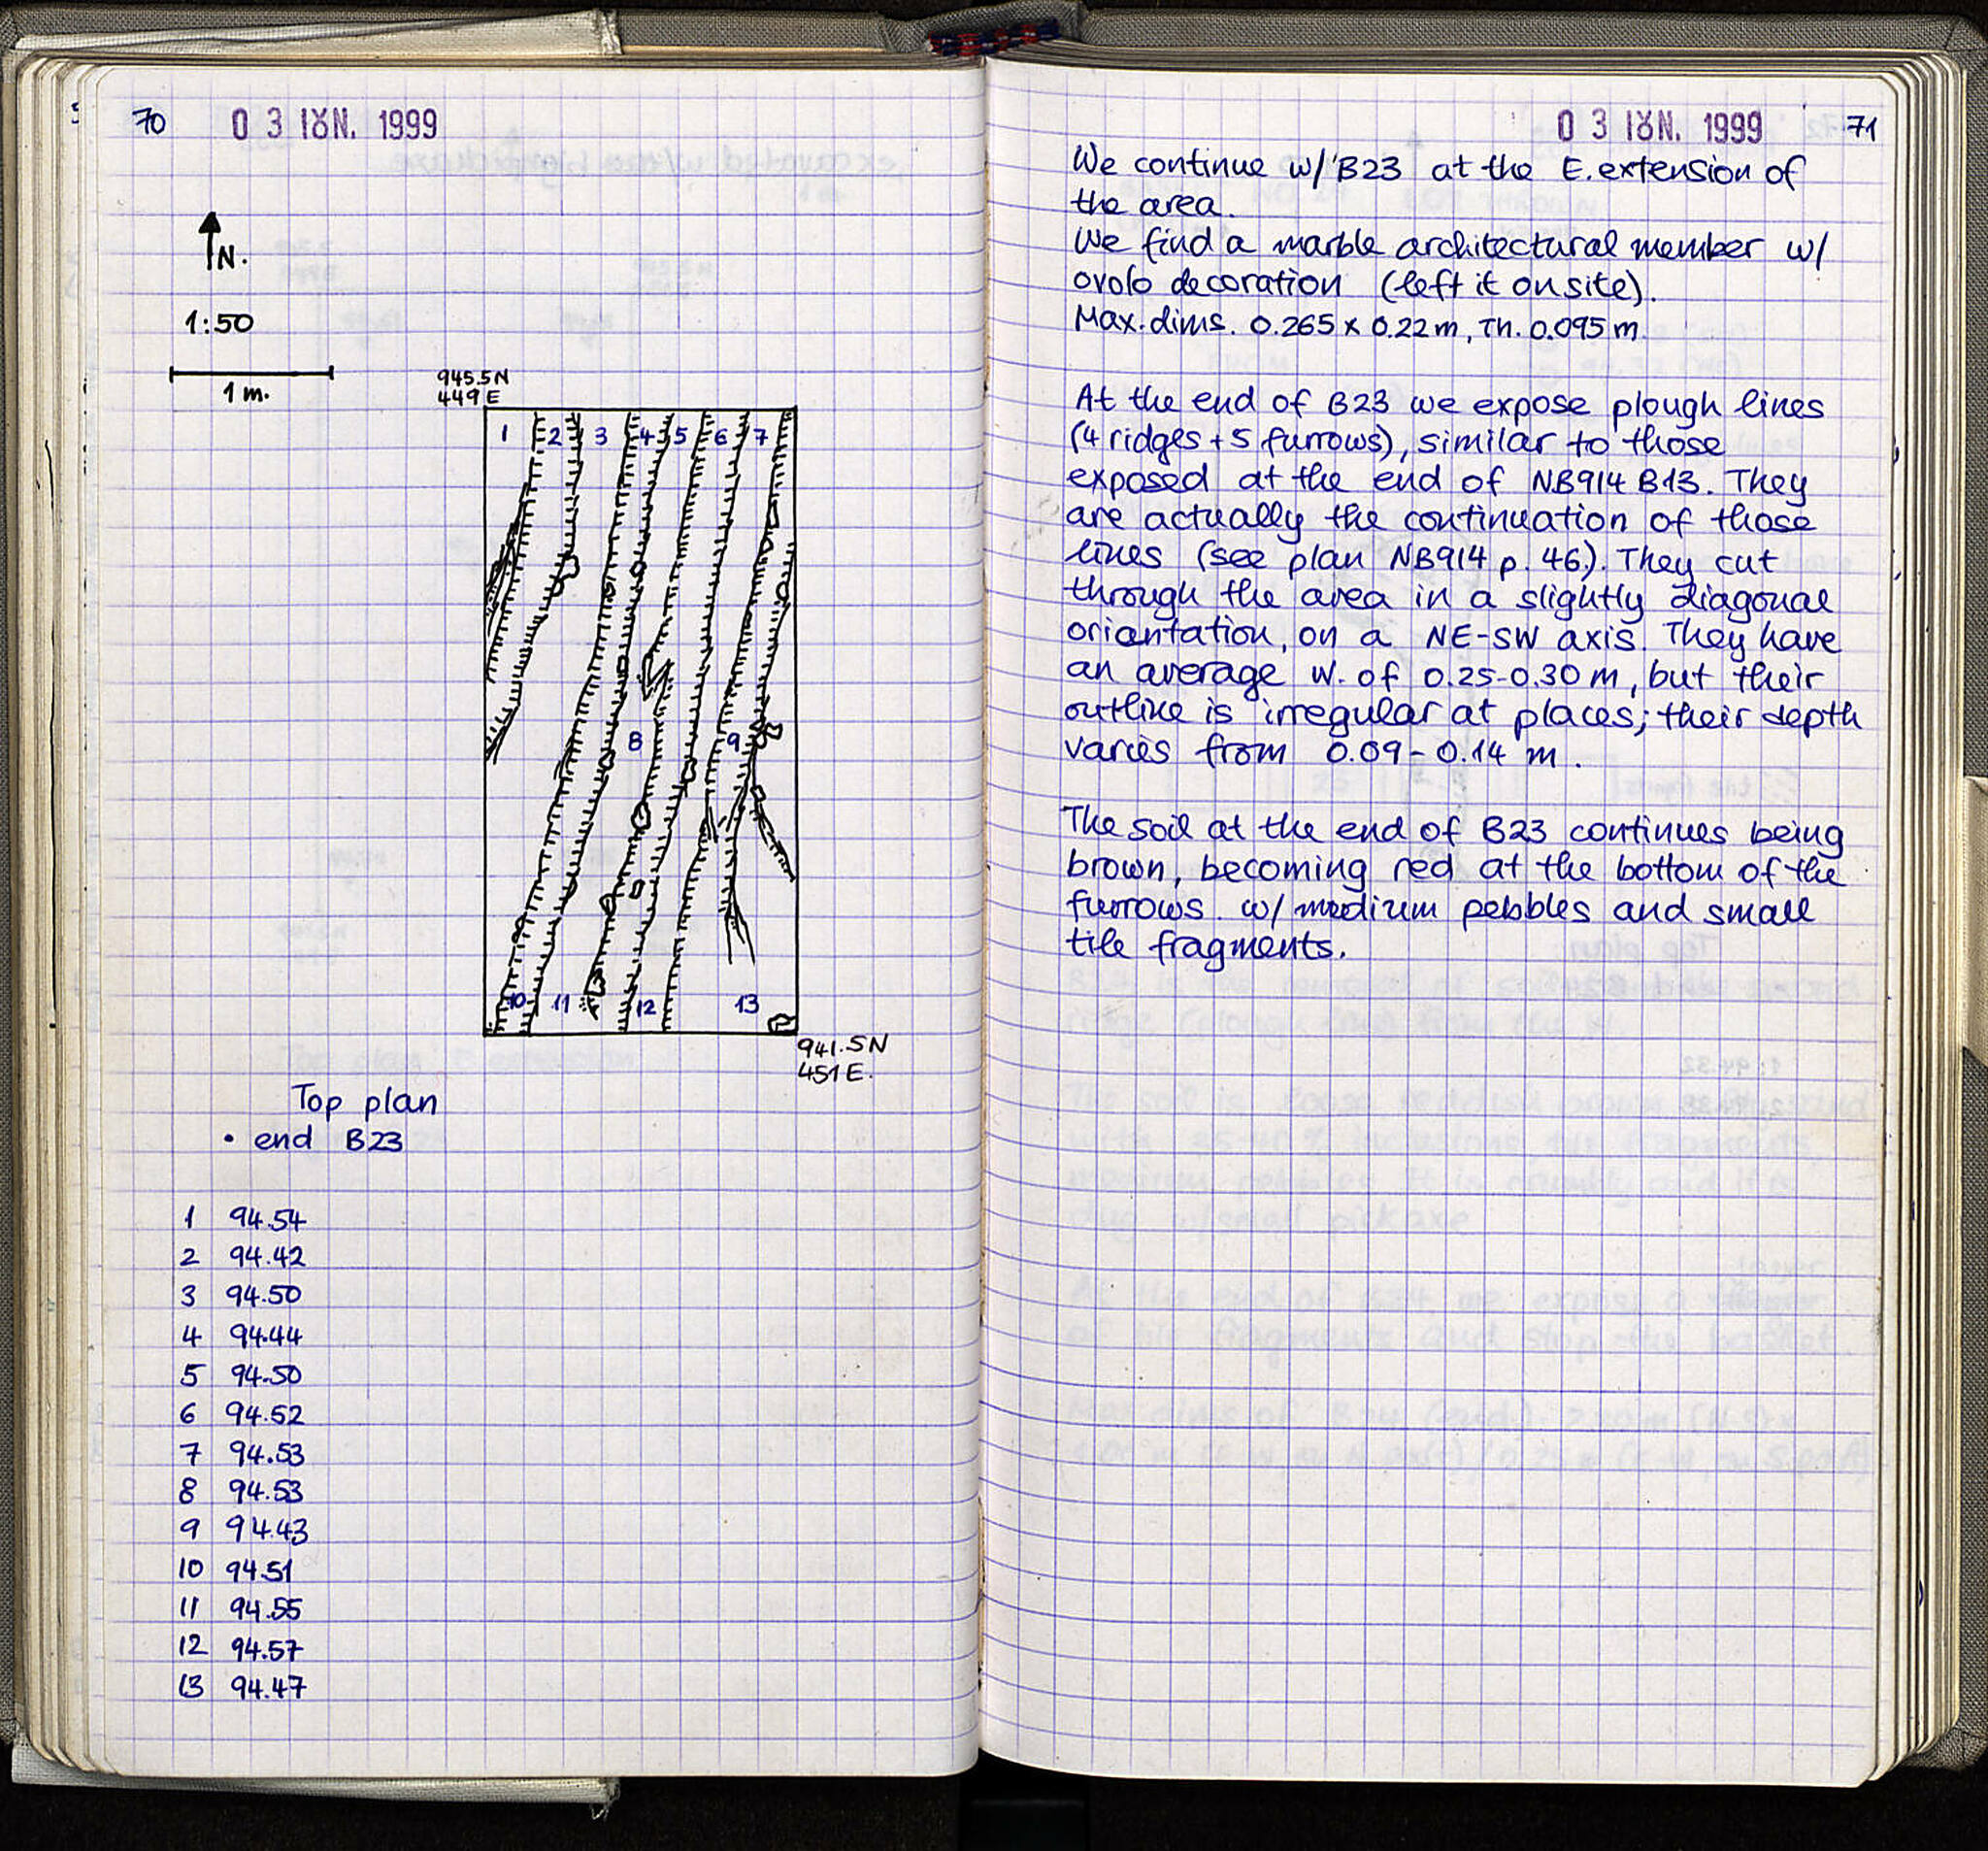 70
03 ΙȢΝ. 1999
N.
1:50
1 m.
945.5N
449 E
1 2 3 4 5 6 7
8 9
10 11 12 13
941.5N
451 E.
Top plan
• end B23
1 94.54
2 94.42
3 94.50
4 94.44
5 94.50
6 94.52
7 94.53
8 94.53
9 94.43
10 94.51
11 94.55
12 94.57
13 94.47
03 ΙȢΝ. 1999
71
We continue w/ B23 at the E. extension of
the area.
We find a marble architectural member w/
ovolo decoration (left it on site).
Max. dims. 0.265 x 0.22 m, Th. 0.095 m.
At the end of B23 we expose plough lines
(4 ridges + 5 furrows), similar to those
exposed at the end of NB914 B13. They
are actually the continuation of those
lines (see plan NB914 p. 46.). They cut
through the area in a slightly diagonal
oriantation, on a NE-SW axis. They have
an average w. of 0.25-0.30 m, but their
outline is irregular at places; their depth
varies from 0.09-0.14 m.
The soil at the end of B23 continues being
brown, becoming red at the bottom of the
furrows. w/ medium pebbles and small
tile fragments.